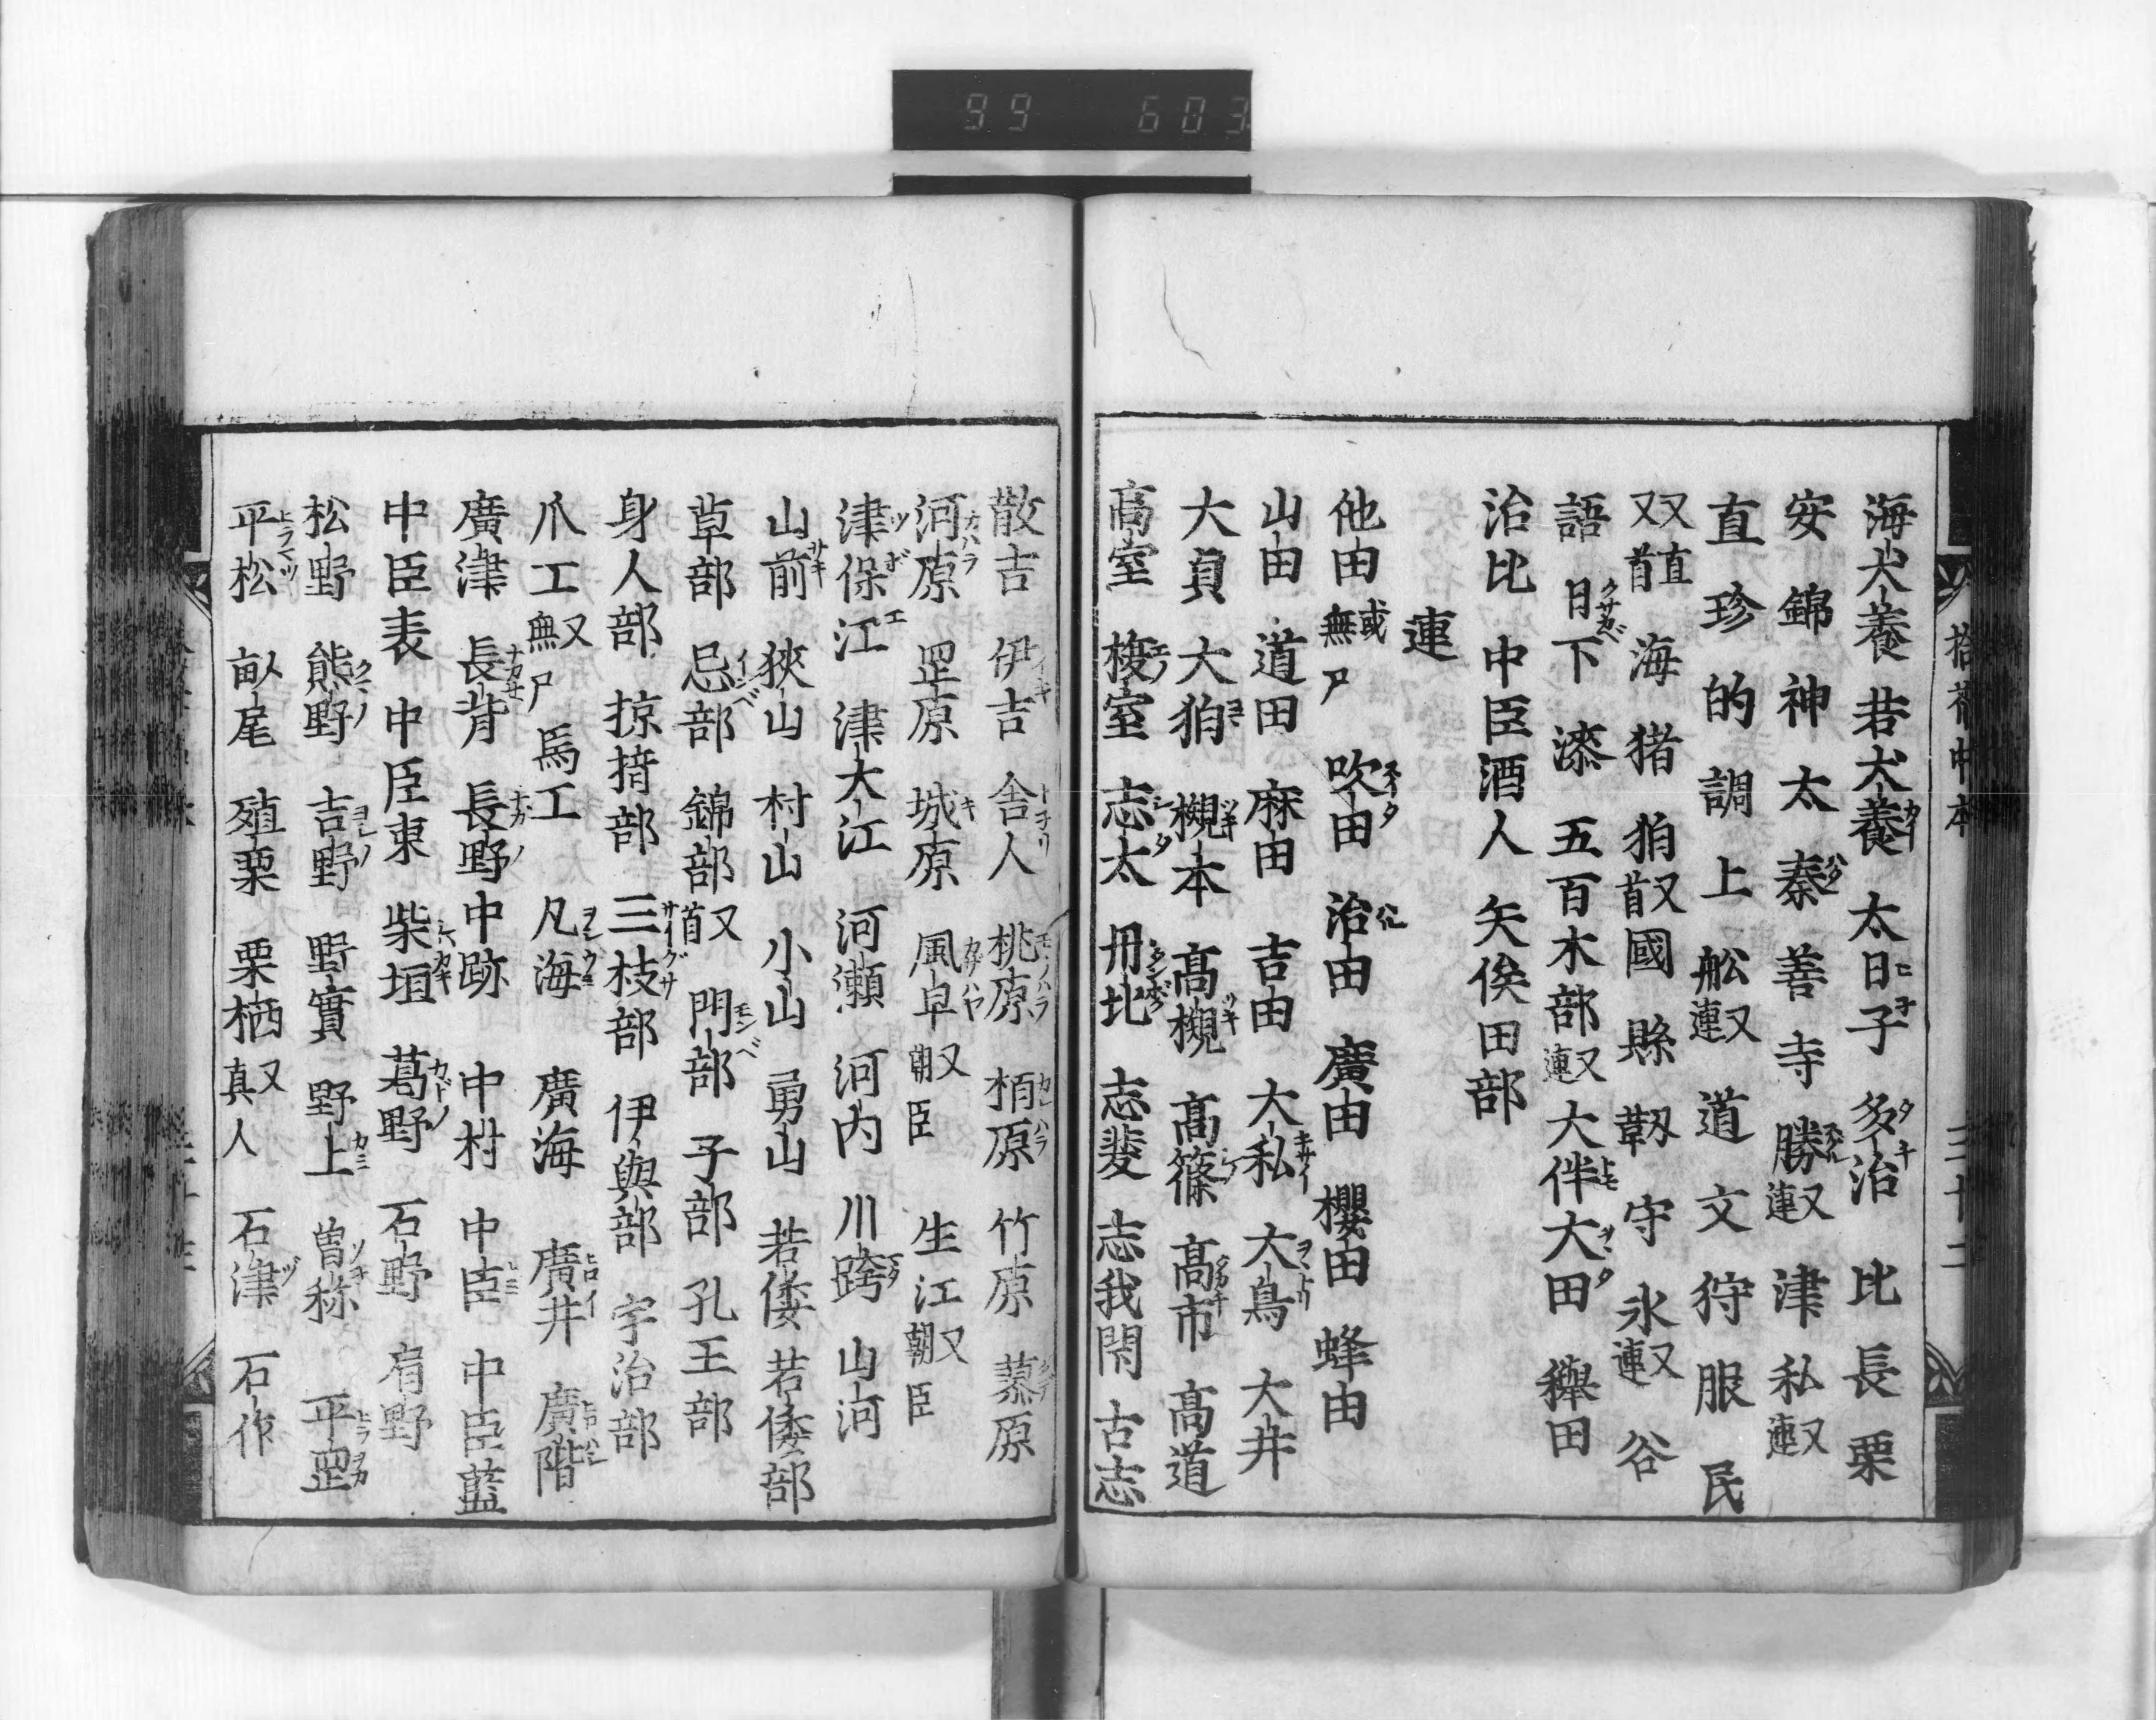 99 603
海犬養 若犬養 太日子 多治 比 長 栗
安 錦 神 太 秦 善 寺 勝又連 津 私又連
直 珍 的 調 上 舩又連 道 文 狩 服 民
又直又首 海 猪 狛又首 國 縣 靱 守 氷又連 谷
語 日下 漆 五百木部又連 大伴大田 䅈田
治比 中臣酒人 矢俟田部
連
他田或無尸 吹田 治田 廣田 櫻田 蜂田
山田 道田 麻田 吉田 大私 大鳥 大井
大貞 大狛 槻本 高槻 高篠 高市 高道
高室 榎室 志太 丹比 志斐 志我閇 古志
散吉 伊吉 舎人 桃原 栢原 竹原 慕原
河原 罡原 城原 風早又朝臣 生江又朝臣
津保江 津大江 河瀬 河内 川跨 山河
山前 狹山 村山 小山 勇山 若倭 若倭部
草部 忌部 錦部又首 門部 子部 孔王部
身人部 掠揩部 三枝部 伊與部 宇治部
爪工又無尸 爲工 凡海 廣海 廣井 廣階
廣津 長背 長野 中跡 中村 中臣 中臣藍
中臣表 中臣東 柴垣 葛野 石野 肩野
松野 熊野 吉野 野實 野上 曽祢 平罡
平松 畝尾 殖栗 栗栖又真人 石津 石作